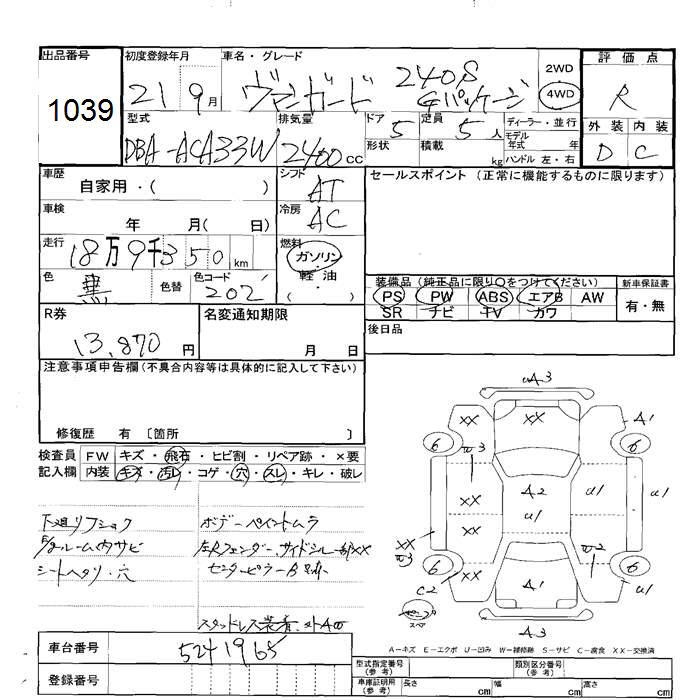 出品番号 初度登録年月 車名・グレード 2WD 評価点
1039 21 9月 ヴァンガード 240S Gパッケージ 4WD R
型式 排気量 ドア 定員 ディーラー・並行 外装 内装
DBA-ACA33W 2400cc 5 5人 モデル年式 年 D C
形状 積載 kg ハンドル 左・右
車歴 シフト セールスポイント (正常に機能するものに限ります)
自家用・( ) AT
車検 冷房
年 月( 日) AC
走行 燃料
18万9千350km ガソリン
軽油
色 色替 色コード ・( )
黒 202 装備品 (純正品に限り○をつけてください) 新車保証書
PS PW ABS エアB AW 有・無
SR ナビ TV カワ
R券 名変通知期限 後日品
13,870円 月 日
注意事項申告欄(不具合内容等は具体的に記入して下さい)
修復歴 有 〔箇所 〕
検査員 FW キズ・飛石・ヒビ割・リペア跡・×要
記入欄 内装 キズ・汚レ・コゲ・穴・スレ・キレ・破レ
下廻リフショク ボデーペイントムラ
ルーム内サビ サイドシル
シートヘタリ・穴 センターピラー
スタッドレス装着
A3
XX XX A1
6 6
W3
XX A2 U1 U1
XX XX U1
W3 W2
6 XX A1 6
C2 U1
スペア
A3
A-キズ E-エクボ U-凹み W-補修跡 S-サビ C-腐食 XX-交換済
車台番号 5241965
型式指定番号(参考) 類別区分番号(参考)
登録番号 車庫証明用(参考) 長さ cm 幅 cm 高さ cm